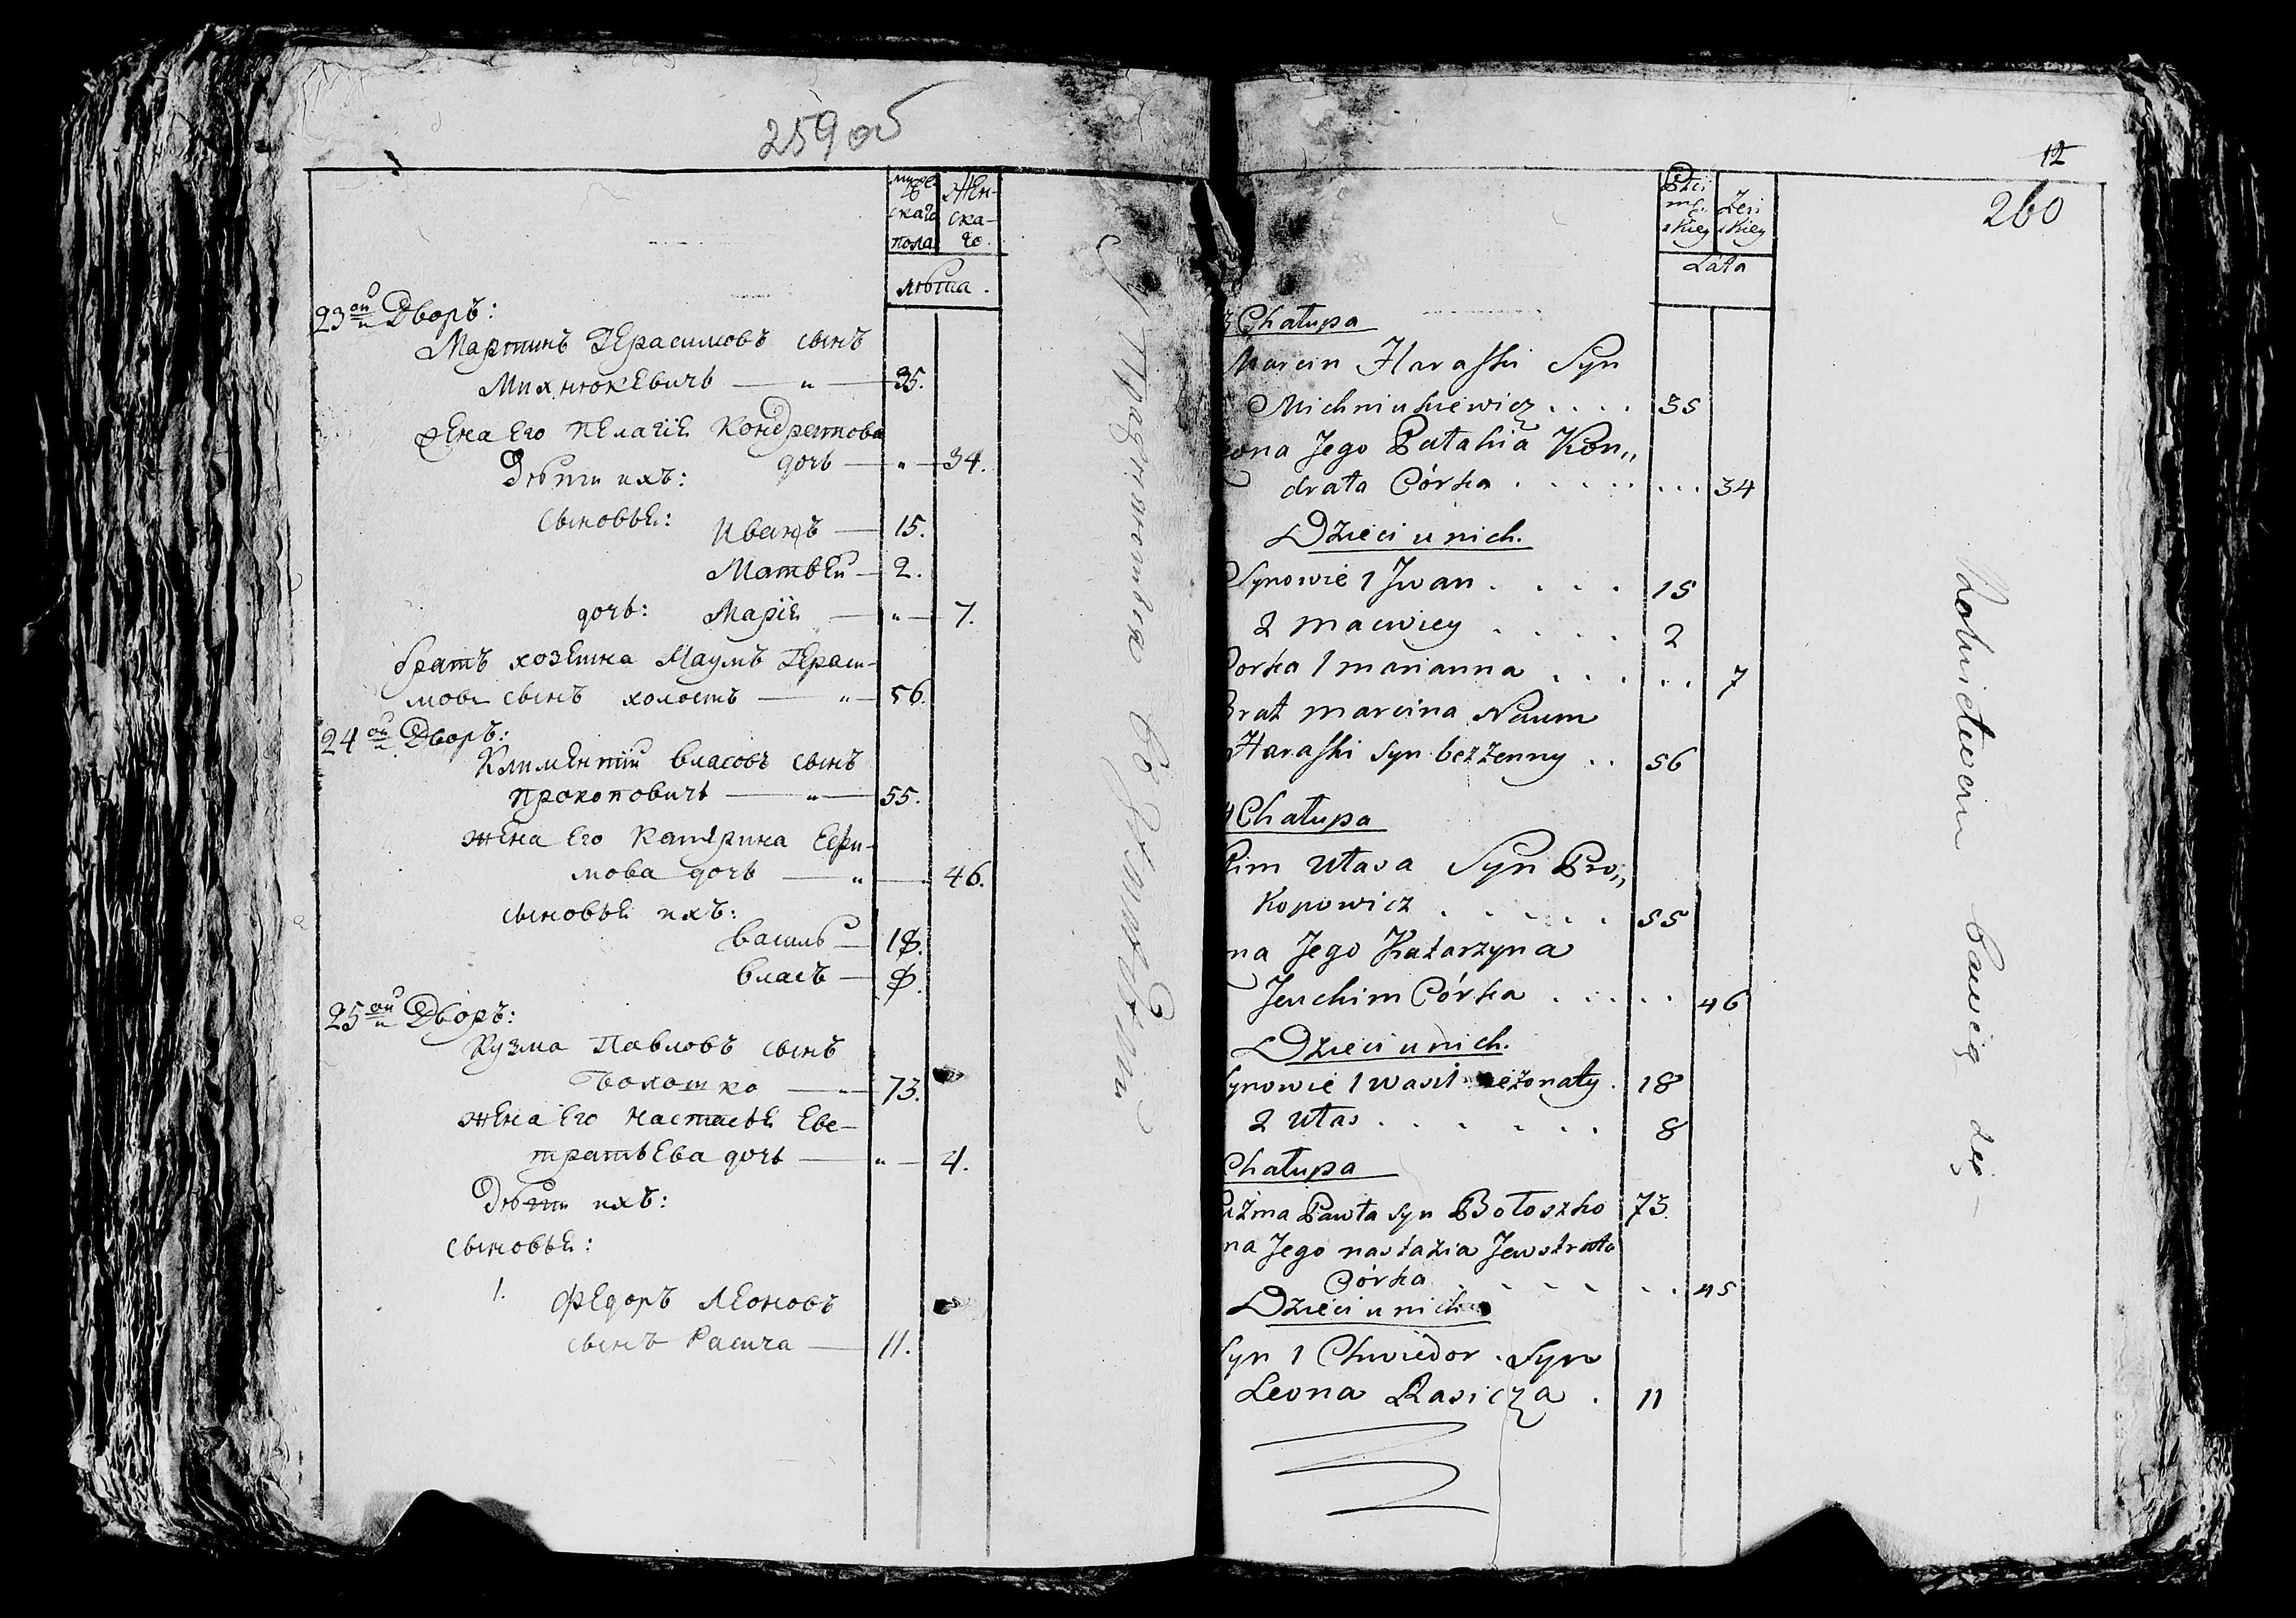 259 об
мужескаго пола
Женскаго.
лѣта.
23ой Дворъ:
Мартинъ Герасимовъ сынъ
Михнюкевичъ — " — 35.
жена Его Пелагiе Кондратова
дочь — " — 34.
Дѣти ихъ:
сыновье: Иванъ — 15.
Матвей — 2.
дочь: Марiе — " — 7.
братъ хозеина Наумъ Гераси-
мовъ сынъ холостъ — " — 56.
24ой Дворъ:
Климентiй Власовъ сынъ
Прокоповичъ — " — 55.
жена Его Катерина Ефи-
мова дочь — " — 46.
сыновье ихъ:
Василь — 18.
Власъ — 8.
25ой Дворъ:
Кузма Павловъ сынъ
Болошко — 73.
жена Его Настасье Евс-
тратьева дочь — " — 4.
Дѣти ихъ:
сыновье:
1. Федоръ Леоновъ
сынъ Расича — 11.
12
260
Płci męskiey
Żeńskiey
Lata
3 Chałupa
Marcin Haraski Syn
Michniukiewicz . . . . 35
ona Jego Pałahia Kon„
drata Córka . . . . . . . . 34
Dzieci u nich.
Synowie 1 Jwan . . . . 15
2 maciwiey . . . . 2
Corka 1 marianna . . . . . 7
Brat marcina Naum
Haraski syn bezżenny . . 56
4 Chałupa
Klim Ułasa Syn Pro„
kopowicz . . . . . 55
na Jego Katarzyna
Jeuchim Córka . . . . . 46
Dzieci u nich.
Synowie 1 wasil nieżonaty . 18
2 Ułas . . . . . . . 8
Chałupa
uźma Pawła syn Bołoszko 73.
na Jego nastazia Jewstrata
Córka . . . . . . . 45
Dzieci u nich
Syn 1 Chwiedor . Syn
Leona Rasicza . 11